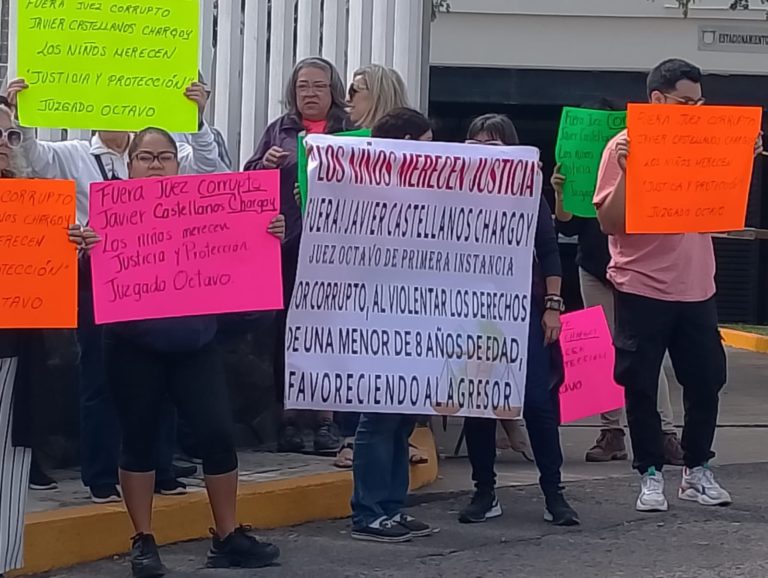 FUERA JUEZ CORRUPTO
JAVIER CASTELLANOS CHARGOY
LOS NIÑOS MERECEN
"JUSTICIA Y PROTECCIÓN"
JUZGADO OCTAVO
ESTACIONAMIENTO
CORRUPTO
CHARGOY
MERECEN
OCTAVO
Fuera Juez corrupto
Javier Castellanos Chargoy
Los Niños merecen
Justicia y Protección
Juzgado Octavo.
"LOS NIÑOS MERECEN JUSTICIA"
FUERA! JAVIER CASTELLANOS CHARGOY
JUEZ OCTAVO DE PRIMERA INSTANCIA
POR CORRUPTO, AL VIOLENTAR LOS DERECHOS
DE UNA MENOR DE 8 AÑOS DE EDAD,
FAVORECIENDO AL AGRESOR
FUERA JUEZ CORRUPTO
JAVIER CASTELLANOS CHARGOY
LOS NIÑOS MERECEN
"JUSTICIA Y PROTECCIÓN"
JUZGADO OCTAVO